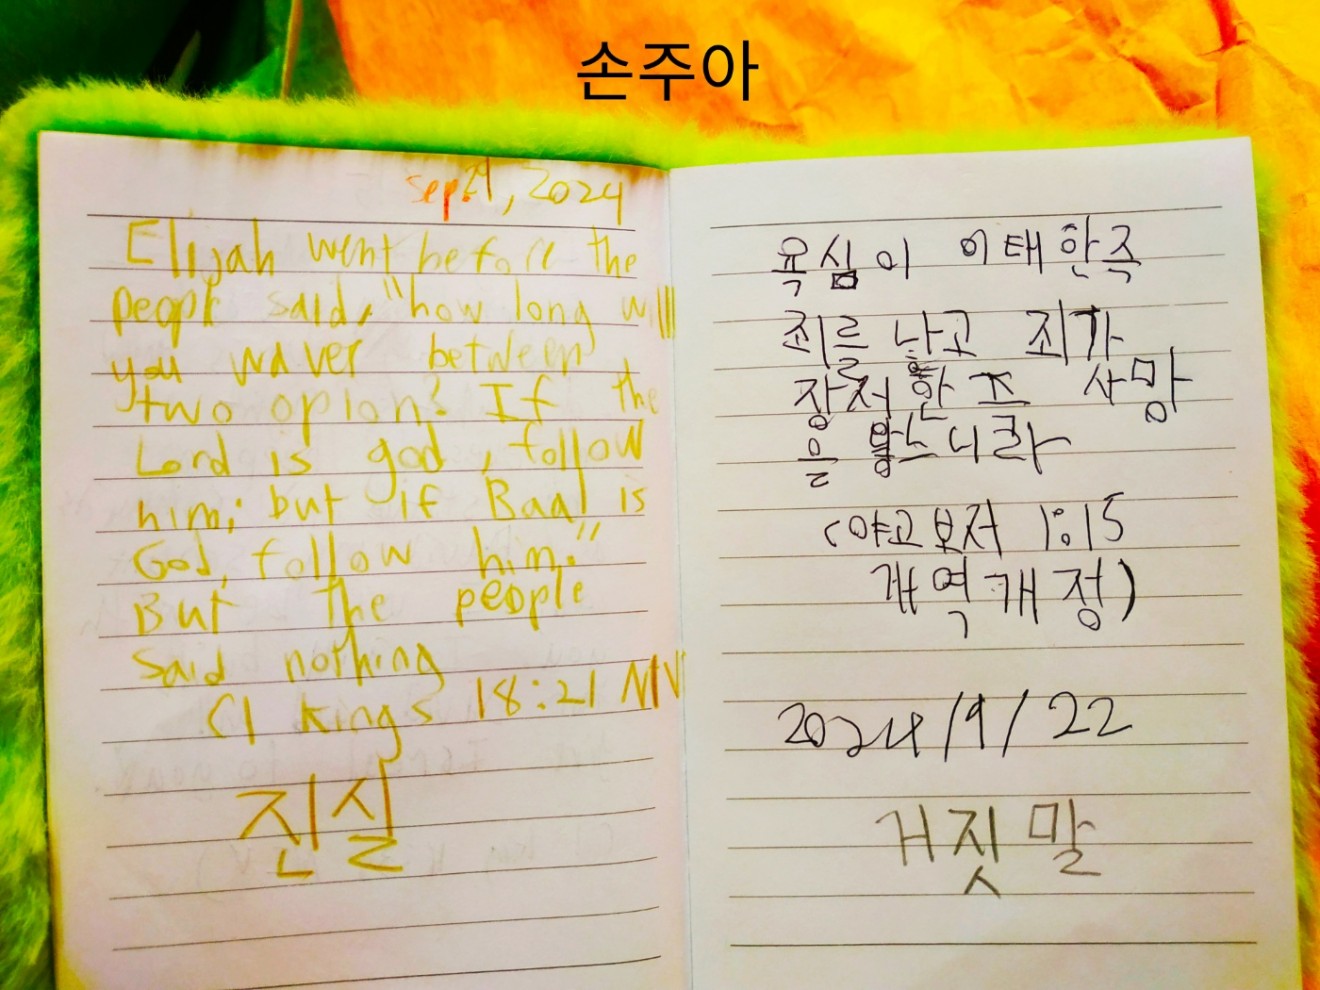 손주아
sep 21, 2024
Elijah went before the
peopl said, "how long will
you waver between
two opion? If the
Lord is god, follow
him; but if Baal is
God, follow him."
But the people
said nothing
(1 kings 18:21 NIV
진실
욕심이 이태한즉
죄르 낳고 죄가
장저한즈 사망
을 낳느니라
(야고보저 1:15
개역개정)
2024/9/22
거짓말